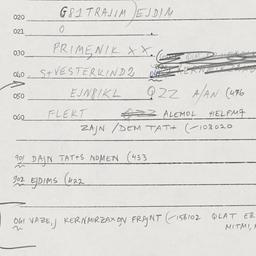 020 G81TRAJIM ) EJDIM
021 0
030 PRIMEJNIK X X. (
040 S+VESTERKIND2
050 EJNBIKL QZZ A/AN (496
060 FLEKT ALEMOL HELFM7
ZAJN /DEM TAT+ (-103020
901 DAJN TAT+S NOMEN (433
902 EJDIMS (422
061 VAZE,J KERNMRZAXQN FRAJNT (-158102 QLAT
NITMI,